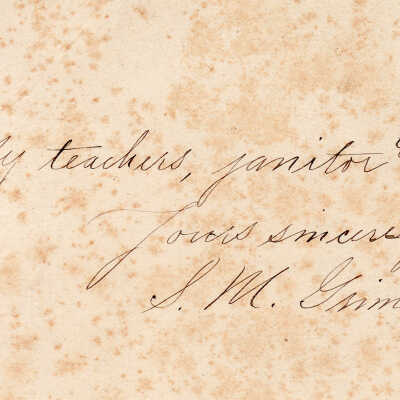 ly teachers, janitor
Yours sincere
S. M. Grim